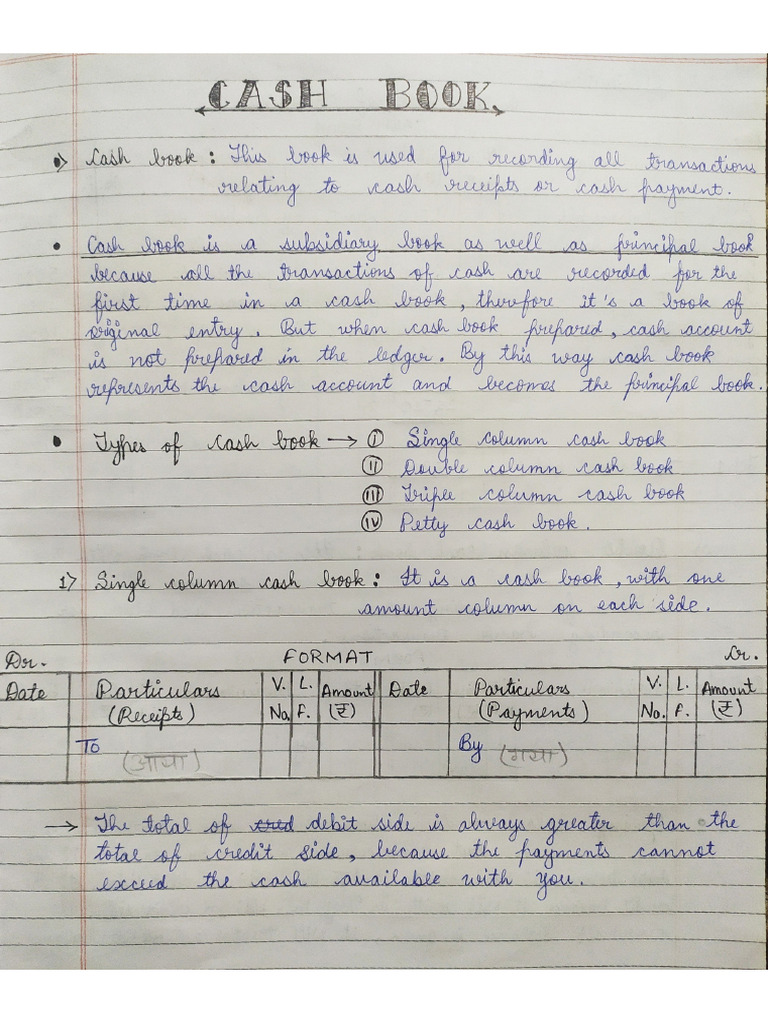 CASH BOOK
Cash book : This book is used for recording all transactions
relating to cash receipts or cash payment.
• Cash book is a subsidiary book as well as principal book
because all the transactions of cash are recorded for the
first time in a cash book, therefore it's a book of
original entry. But when cash book prepared, cash account
is not prepared in the ledger. By this way cash book
represents the cash account and becomes the principal book.
• Types of cash book → (i) Single column cash book
(ii) Double column cash book
(iii) Triple column cash book
(iv) Petty cash book.
1) Single column cash book : It is a cash book, with one
amount column on each side.
Dr. FORMAT Cr.
Date Particulars V. L. Amount Date Particulars V. L. Amount
(Receipts) No. F. (₹) (Payments) No. F. (₹)
To (आया) By (गया)
→ The total of cred debit side is always greater than the
total of credit side, because the payments cannot
exceed the cash available with you.